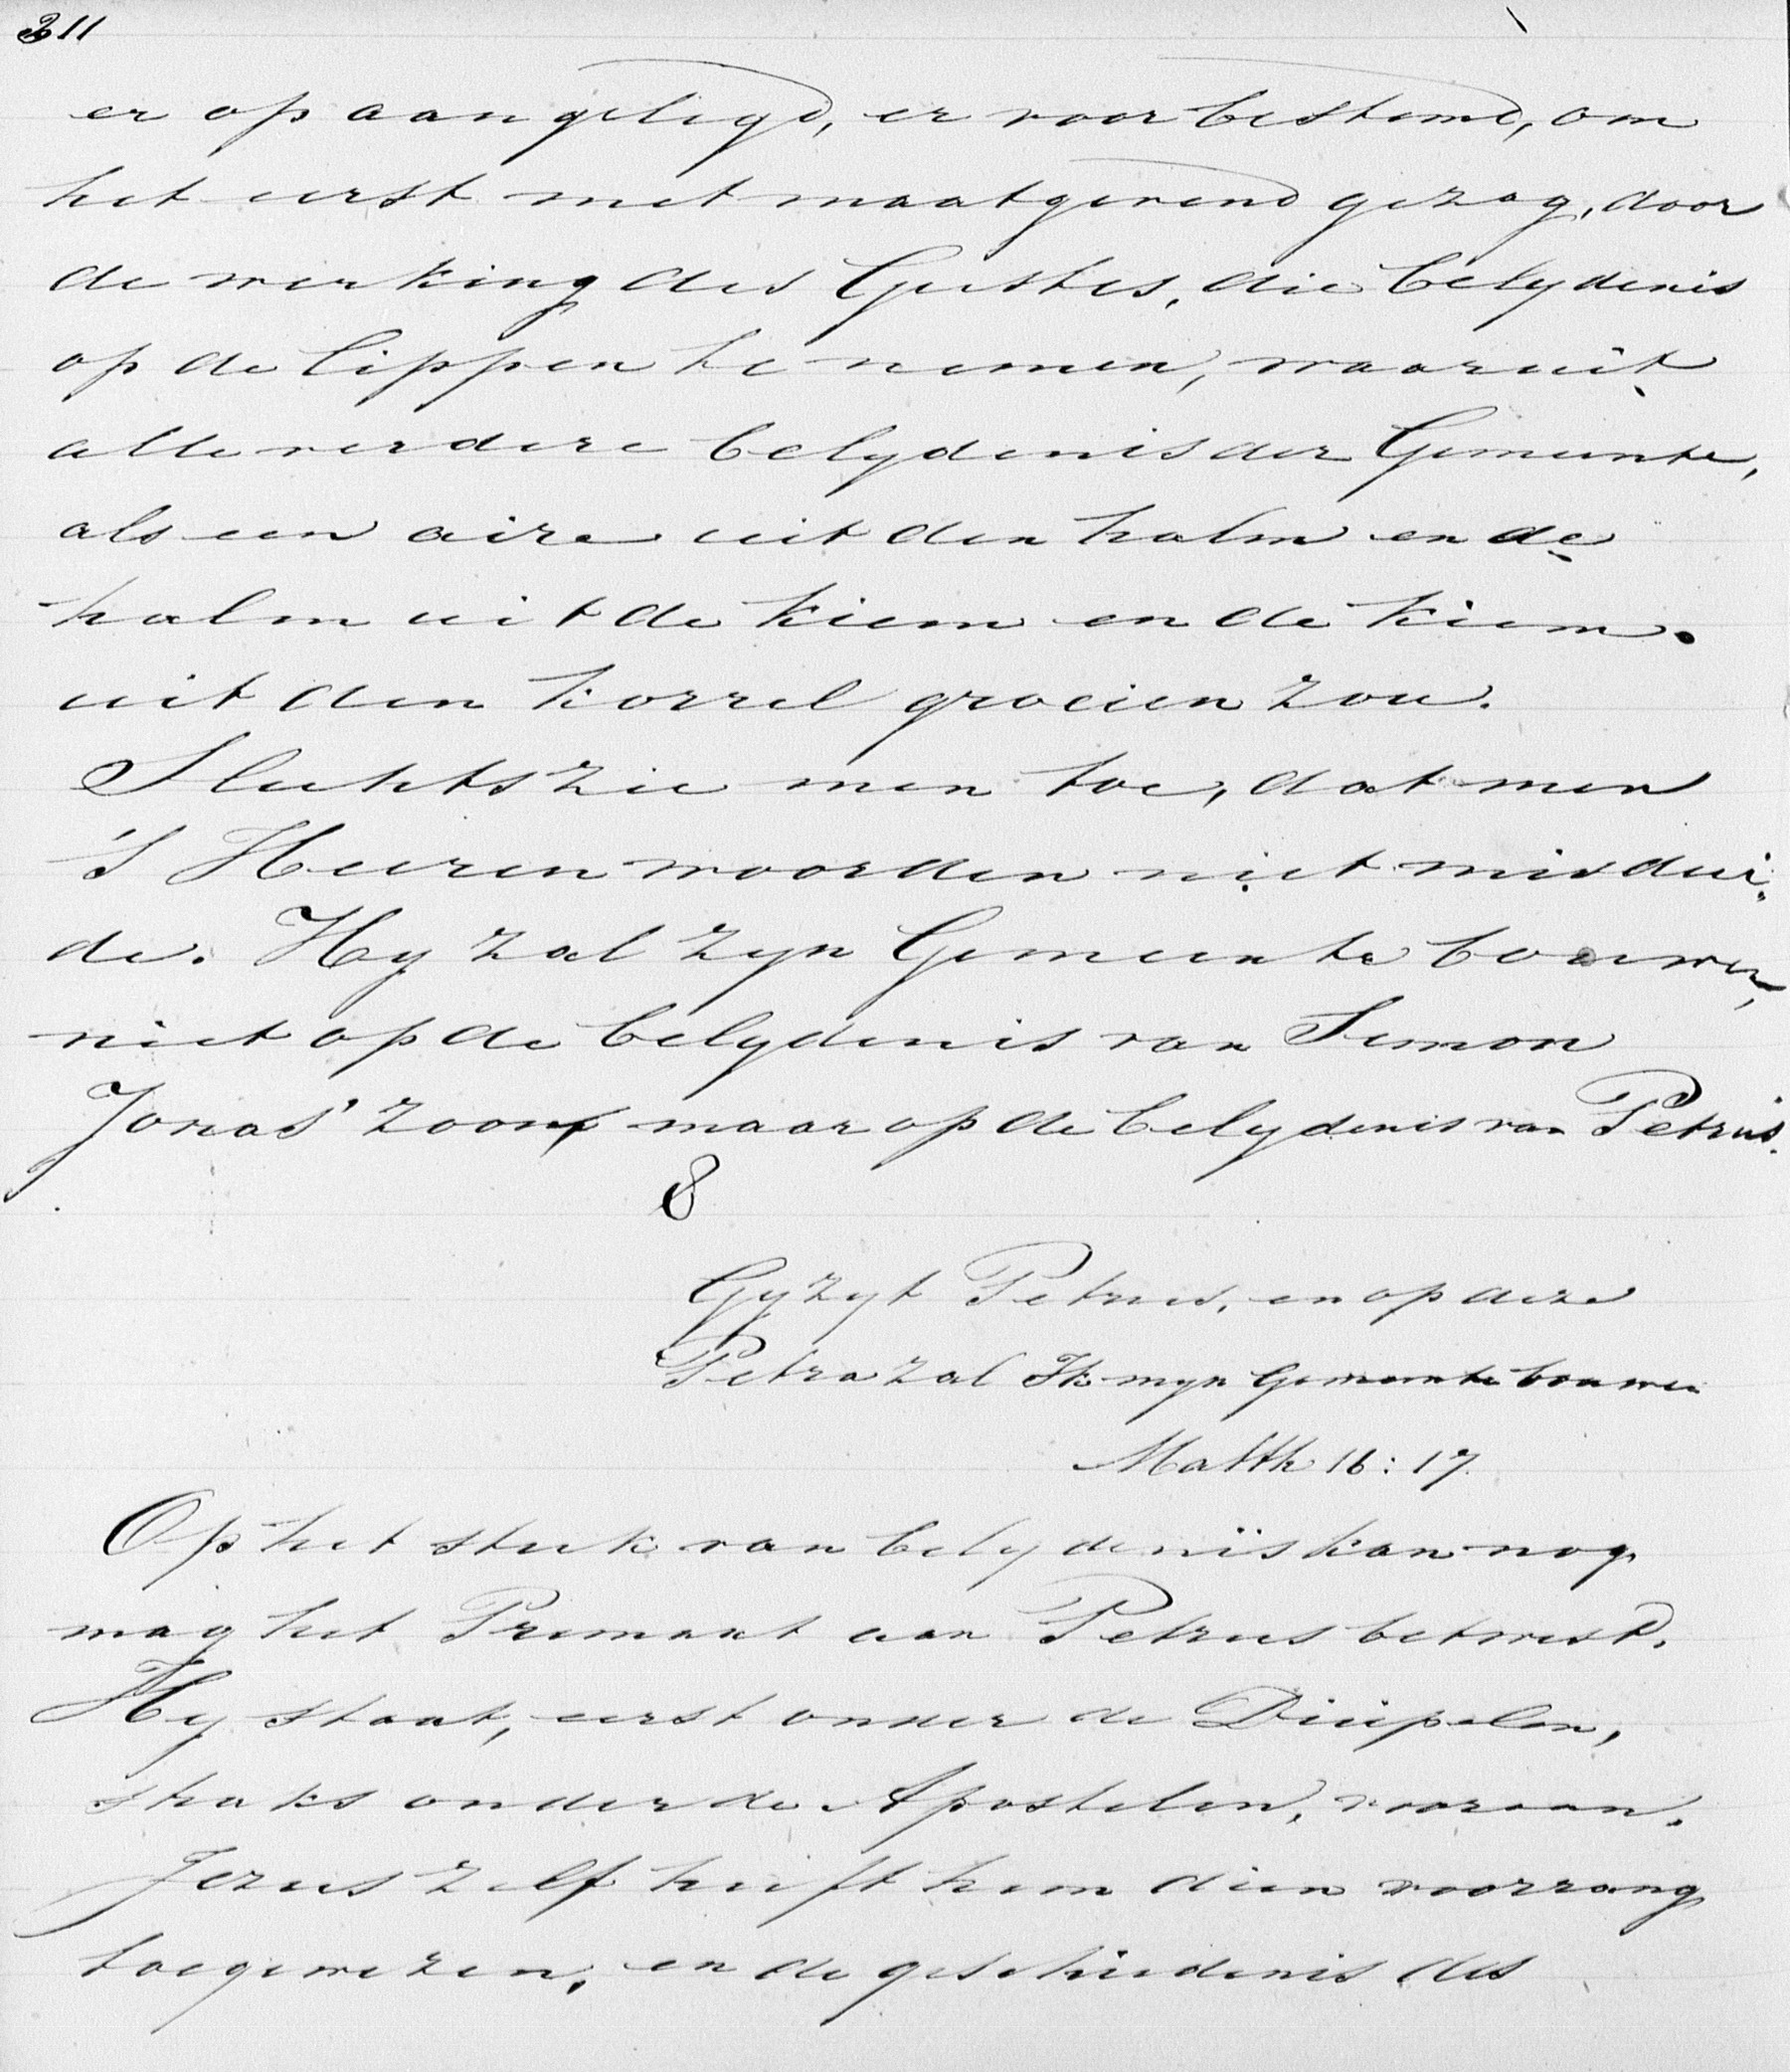 311
er op aangelegd, er voor bestemd, om
het eerst met maatgevend gezag, door
de werking des Geestes, die belydenis
op de lippen te nemen, waaruit
alle verdere belydenis der Gemeente,
als een aire uit den halm en de
halm uit de kiem en de kiem
uit den korrel groeien zou.
Slechts zie men toe, dat men
's Heeren woorden niet misdui-
de. Hy zal zyn Gemeente bouwen,
niet op de belydenis van Simon
Jonas' zoon, maar op de belydenis van Petrus.
8
Gy zyt Petrus, en op deze
Petra zal Ik myn Gemeente bouwen
Matth 16:17.
Op het stuk van belydenis kan nog
mag het Primaat aan Petrus betwist.
Hy staat, eerst onder de Discipelen,
straks onder de Apostelen, vooraan.
Jezus zelf heeft hem dien voorrang
toegewezen, en de geschiedenis des